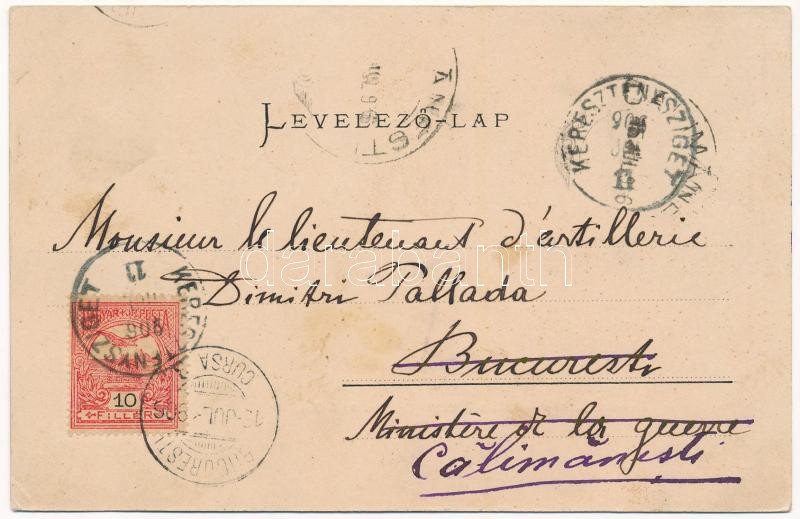 LEVELEZŐ-LAP
KERESZTÉNYSZIGET
906
11
Monsieur le lieutenant d'artillerie
Dimitri Pallada
darabanth
Bucuresti
Ministère de la guerre
Călimănești
KERESZTÉNYSZIGET
906
11
MAGYAR KIR. POSTA
10
FILLÉR
CURSA
BUCURESTI